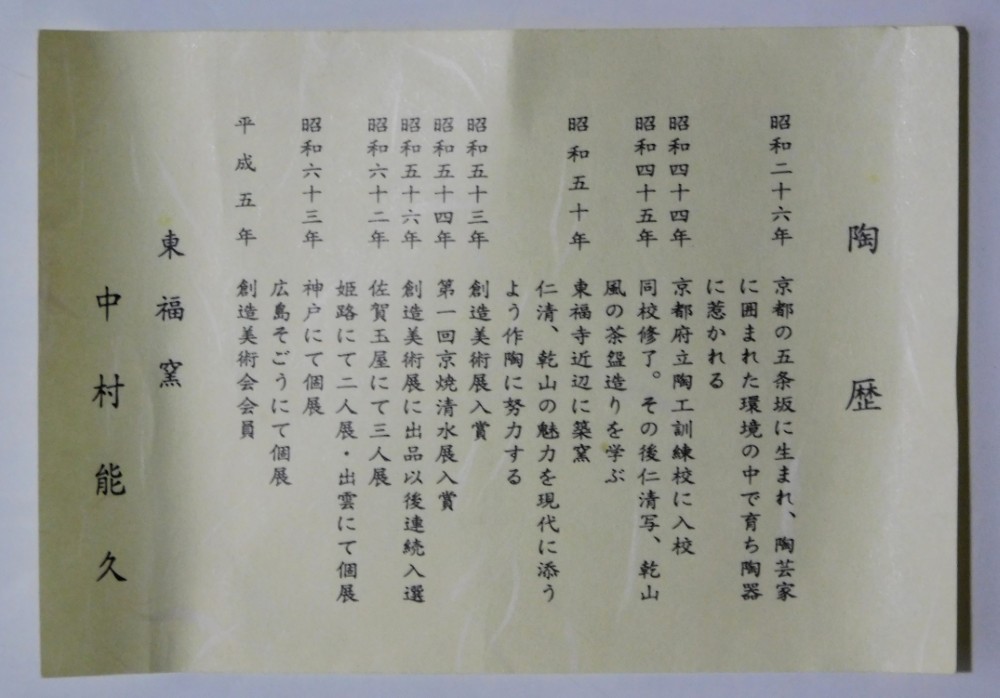 陶歴
昭和二十六年 京都の五条坂に生まれ、陶芸家
に囲まれた環境の中で育ち陶器
に惹かれる
昭和四十四年 京都府立陶工訓練校に入校
昭和四十五年 同校修了。その後仁清写、乾山
風の茶盌造りを学ぶ
昭和五十年 東福寺近辺に築窯
仁清、乾山の魅力を現代に添う
よう作陶に努力する
昭和五十三年 創造美術展入賞
昭和五十四年 第一回京焼清水展入賞
昭和五十六年 創造美術展に出品以後連続入選
昭和六十二年 佐賀玉屋にて三人展
姫路にて二人展・出雲にて個展
昭和六十三年 神戸にて個展
広島そごうにて個展
平成五年 創造美術会会員
東福窯
中村能久